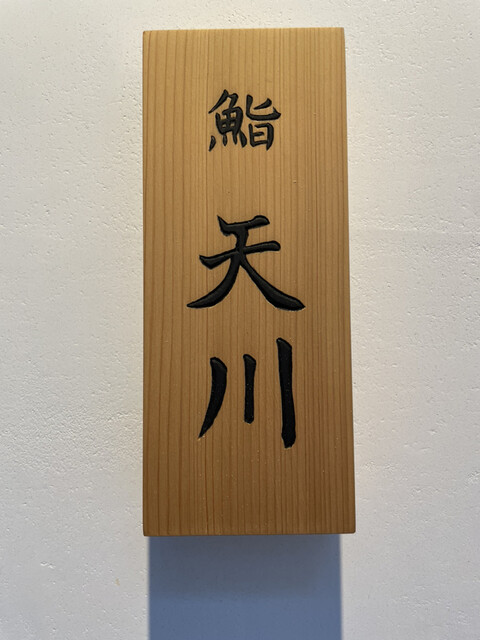 鮨 天川